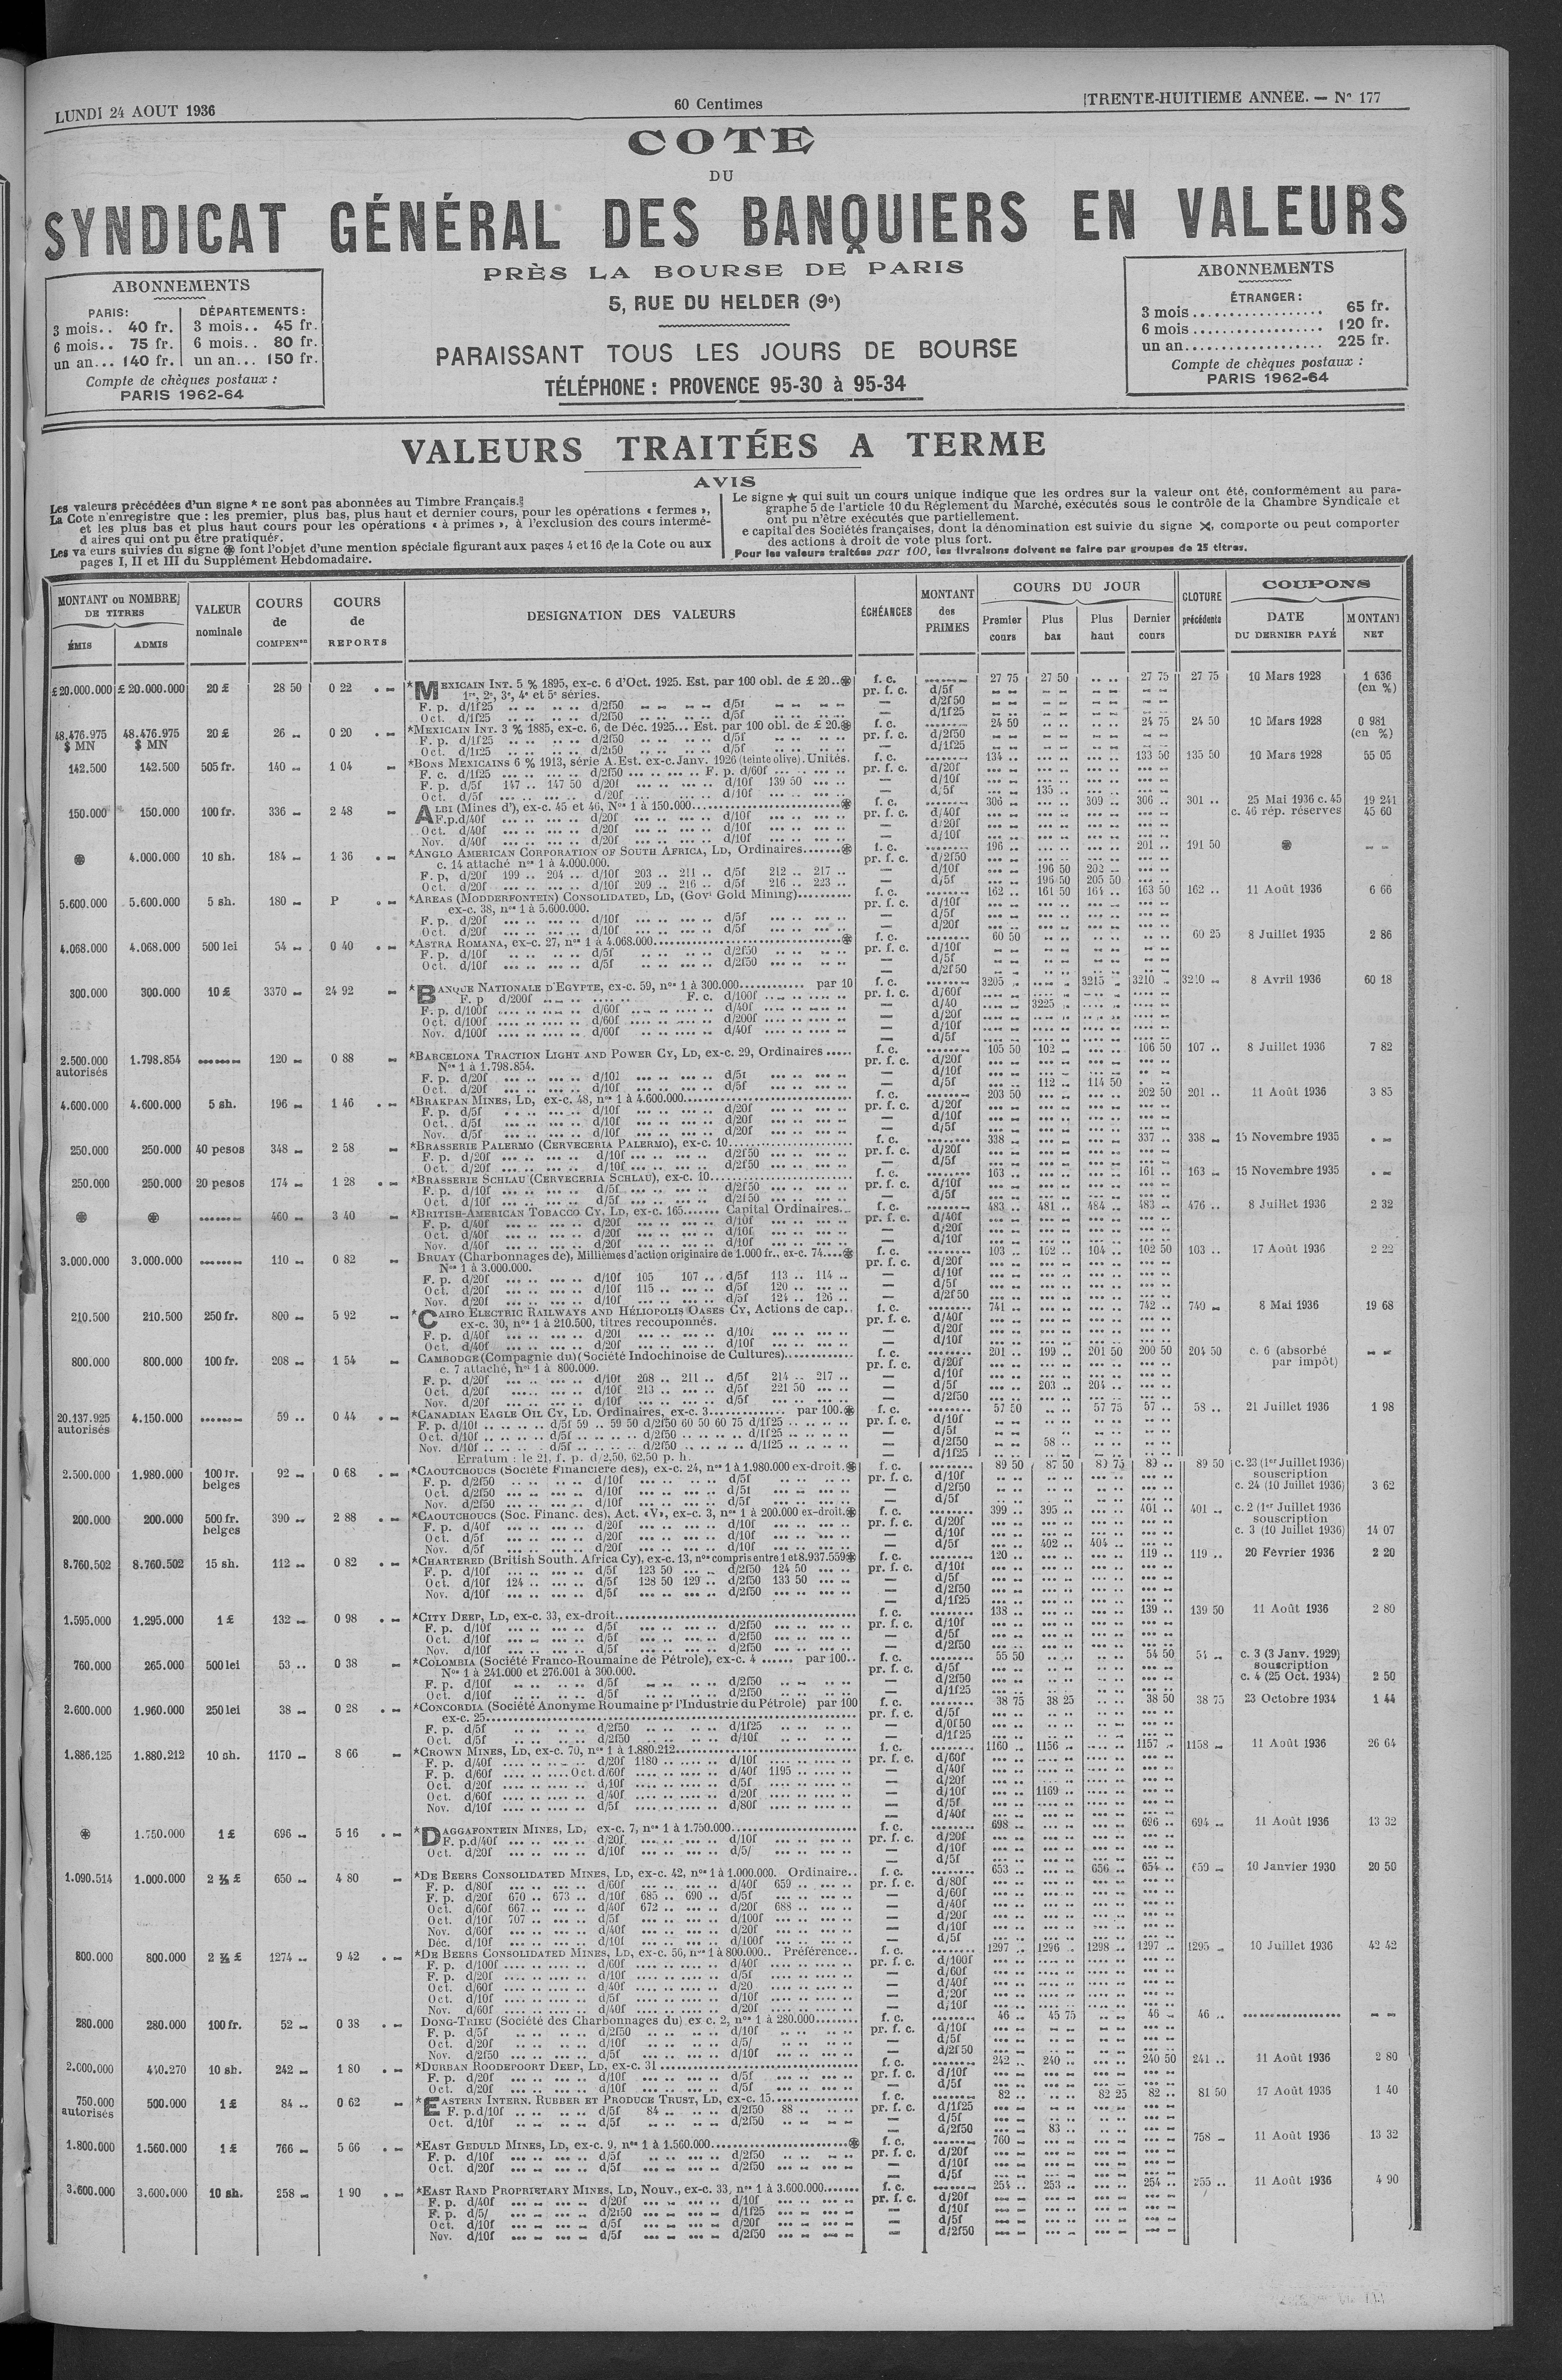 LUNDI 24 AOUT 1936
60 Centimes
TRENTE-HUITIEME ANNÉE. — N° 177
COTE
DU
SYNDICAT GÉNÉRAL DES BANQUIERS EN VALEURS
PRÈS LA BOURSE DE PARIS
5, RUE DU HELDER (9e)
PARAISSANT TOUS LES JOURS DE BOURSE
TÉLÉPHONE : PROVENCE 95-30 à 95-34
ABONNEMENTS
PARIS: DÉPARTEMENTS:
3 mois.. 40 fr. 3 mois.. 45 fr.
6 mois.. 75 fr. 6 mois.. 80 fr.
un an... 140 fr. un an... 150 fr.
Compte de chèques postaux :
PARIS 1962-64
ABONNEMENTS
ÉTRANGER:
3 mois.................. 65 fr.
6 mois.................. 120 fr.
un an................... 225 fr.
Compte de chèques postaux :
PARIS 1962-64
VALEURS TRAITÉES A TERME
AVIS
Les valeurs précédées d'un signe * ne sont pas abonnées au Timbre Français.
La Cote n'enregistre que : les premier, plus bas, plus haut et dernier cours, pour les opérations « fermes »,
et les plus bas et plus haut cours pour les opérations « à primes », à l'exclusion des cours intermé-
d aires qui ont pu être pratiqués.
Les va eurs suivies du signe ⊛ font l'objet d'une mention spéciale figurant aux pages 4 et 16 de la Cote ou aux
pages I, II et III du Supplément Hebdomadaire.
Le signe ★ qui suit un cours unique indique que les ordres sur la valeur ont été, conformément au para-
graphe 5 de l'article 10 du Règlement du Marché, exécutés sous le contrôle de la Chambre Syndicale et
ont pu n'être exécutés que partiellement.
e capital des Sociétés françaises, dont la dénomination est suivie du signe ✕, comporte ou peut comporter
des actions à droit de vote plus fort.
Pour les valeurs traitées par 100, les livraisons doivent se faire par groupes de 25 titres.
MONTANT ou NOMBRE DE TITRES ÉMIS ADMIS
VALEUR nominale
COURS de COMPENson
COURS de REPORTS
DESIGNATION DES VALEURS
ÉCHÉANCES
MONTANT des PRIMES
COURS DU JOUR Premier cours Plus bas Plus haut Dernier cours
CLOTURE précédente
COUPONS DATE DU DERNIER PAYÉ MONTANT NET
£ 20.000.000 £ 20.000.000 20 £ 28 50 0 22 *MEXICAIN INT. 5 % 1895, ex-c. 6 d'Oct. 1925. Est. par 100 obl. de £ 20..⊛ f. c. 27 75 27 50 27 75 27 75 10 Mars 1928 1 636
1re, 2e, 3e, 4e et 5e séries. pr. f. c. d/5f (en %)
F. p. d/1f25 d/2f50 d/5f — d/2f50
Oct. d/1f25 d/2f50 d/5f — d/1f25
48.476.975 $ MN 48.476.975 $ MN 20 £ 26 0 20 *MEXICAIN INT. 3 % 1885, ex-c. 6, de Déc. 1925... Est. par 100 obl. de £ 20.⊛ f. c. 24 50 24 75 24 50 10 Mars 1928 0 981
F. p. d/1f25 d/2f50 d/5f pr. f. c. d/2f50 (en %)
Oct. d/1f25 d/2f50 d/5f — d/1f25
142.500 142.500 505 fr. 140 1 04 *BONS MEXICAINS 6 % 1913, série A. Est. ex-c. Janv. 1926 (teinte olive). Unités. f. c. 134 133 50 135 50 10 Mars 1928 55 05
F. c. d/1f25 d/2f50 F. p. d/60f pr. f. c. d/20f
F. p. d/5f 147 147 50 d/20f d/10f 139 50 — d/10f
Oct. d/5f d/20f d/10f — d/5f 135
150.000 150.000 100 fr. 336 2 48 ALBI (Mines d'), ex-c. 45 et 46, Nos 1 à 150.000 ⊛ f. c. 306 309 306 301 25 Mai 1936 c. 45 19 241
F. p. d/40f d/20f d/10f pr. f. c. d/40f c. 46 rép. réserves 45 60
Oct. d/40f d/20f d/10f — d/20f
Nov. d/40f d/20f d/10f — d/10f
⊛ 4.000.000 10 sh. 184 1 36 *ANGLO AMERICAN CORPORATION OF SOUTH AFRICA, LD, Ordinaires.......⊛ f. c. 196 201 191 50 ⊛
c. 14 attaché nos 1 à 4.000.000. pr. f. c. d/2f50
F. p. d/20f 199 204 d/10f 203 211 d/5f 212 217 — d/10f 196 50 202
Oct. d/20f d/10f 209 216 d/5f 216 223 — d/5f 196 50 205 50
5.600.000 5.600.000 5 sh. 180 P *AREAS (MODDERFONTEIN) CONSOLIDATED, LD, (Govt Gold Mining) f. c. 162 161 50 164 163 50 162 11 Août 1936 6 66
ex-c. 38, nos 1 à 5.600.000. pr. f. c. d/10f
F. p. d/20f d/10f d/5f — d/5f
Oct. d/20f d/10f d/5f — d/20f
4.068.000 4.068.000 500 lei 54 0 40 *ASTRA ROMANA, ex-c. 27, nos 1 à 4.068.000 ⊛ f. c. 60 50 60 25 8 Juillet 1935 2 86
F. p. d/10f d/5f d/2f50 pr. f. c. d/10f
Oct. d/10f d/5f d/2f50 — d/5f
— d/2f50
300.000 300.000 10 £ 3370 24 92 *BANQUE NATIONALE D'EGYPTE, ex-c. 59, nos 1 à 300.000 par 10 f. c. 3205 3215 3210 3210 8 Avril 1936 60 18
F. p d/200f F. c. d/100f pr. f. c. d/60f
F. p. d/100f d/60f d/40f — d/40 3225
Oct. d/100f d/60f d/200f — d/20f
Nov. d/100f d/60f d/40f — d/10f
— d/5f
2.500.000 autorisés 1.798.854 120 0 88 *BARCELONA TRACTION LIGHT AND POWER CY, LD, ex-c. 29, Ordinaires f. c. 105 50 102 106 50 107 8 Juillet 1936 7 82
Nos 1 à 1.798.854. pr. f. c. d/20f
F. p. d/20f d/10f d/5f — d/10f
Oct. d/20f d/10f d/5f — d/5f 112 114 50
4.600.000 4.600.000 5 sh. 196 1 46 *BRAKPAN MINES, LD, ex-c. 48, nos 1 à 4.600.000 f. c. 203 50 202 50 201 11 Août 1936 3 85
F. p. d/5f d/10f d/20f pr. f. c. d/20f
Oct. d/5f d/10f d/20f — d/10f
Nov. d/5f d/10f d/20f — d/5f
250.000 250.000 40 pesos 348 2 58 *BRASSERIE PALERMO (CERVECERIA PALERMO), ex-c. 10 f. c. 338 337 338 15 Novembre 1935
F. p. d/20f d/10f d/2f50 pr. f. c. d/20f
Oct. d/20f d/10f d/2f50 — d/5f
250.000 250.000 20 pesos 174 1 28 *BRASSERIE SCHLAU (CERVECERIA SCHLAU), ex-c. 10 f. c. 163 161 163 15 Novembre 1935
F. p. d/10f d/5f d/2f50 pr. f. c. d/10f
Oct. d/10f d/5f d/2f50 — d/5f
⊛ ⊛ 460 3 40 *BRITISH-AMERICAN TOBACCO CY, LD, ex-c. 165....... Capital Ordinaires... f. c. 483 481 484 483 476 8 Juillet 1936 2 32
F. p. d/40f d/20f d/10f pr. f. c. d/40f
Oct. d/40f d/20f d/10f — d/20f
Nov. d/40f d/20f d/10f — d/10f
3.000.000 3.000.000 110 0 82 BRUAY (Charbonnages de), Millièmes d'action originaire de 1.000 fr., ex-c. 74....⊛ f. c. 103 102 104 102 50 103 17 Août 1936 2 22
Nos 1 à 3.000.000. pr. f. c. d/20f
F. p. d/20f d/10f 105 107 d/5f 113 114 — d/10f
Oct. d/20f d/10f 115 d/5f 120 — d/5f
Nov. d/20f d/10f d/5f 124 126 — d/2f50
210.500 210.500 250 fr. 800 5 92 *CAIRO ELECTRIC RAILWAYS AND HÉLIOPOLIS OASES CY, Actions de cap. f. c. 741 742 740 8 Mai 1936 19 68
ex-c. 30, nos 1 à 210.500, titres recouponnés. pr. f. c. d/40f
F. p. d/40f d/20f d/10f — d/20f
Oct. d/40f d/20f d/10f — d/10f
800.000 800.000 100 fr. 208 1 54 CAMBODGE (Compagnie du) (Société Indochinoise de Cultures) f. c. 201 199 201 50 200 50 204 50 c. 6 (absorbé
c. 7 attaché, nos 1 à 800.000. pr. f. c. d/20f par impôt)
F. p. d/20f d/10f 208 211 d/5f 214 217 — d/10f
Oct. d/20f d/10f 213 d/5f 221 50 — d/5f 203 204
Nov. d/20f d/10f d/5f — d/2f50
20.137.925 autorisés 4.150.000 59 0 44 *CANADIAN EAGLE OIL CY, LD. Ordinaires, ex-c. 3 par 100.⊛ f. c. 57 50 57 75 57 58 21 Juillet 1936 1 98
F. p. d/10f d/5f 59 59 50 d/2f50 60 50 60 75 d/1f25 pr. f. c. d/10f
Oct. d/10f d/5f d/2f50 d/1f25 — d/5f
Nov. d/10f d/5f d/2f50 d/1f25 — d/2f50 58
Erratum : le 21, f. p. d/2,50, 62,50 p. h. — d/1f25
2.500.000 1.980.000 100 fr. belges 92 0 68 *CAOUTCHOUCS (Société Financière des), ex-c. 24, nos 1 à 1.980.000 ex-droit.⊛ f. c. 89 50 87 50 89 75 89 89 50 c. 23 (1er Juillet 1936)
F. p. d/2f50 d/10f d/5f pr. f. c. d/10f souscription
Oct. d/2f50 d/10f d/5f — d/2f50 c. 24 (10 Juillet 1936) 3 62
Nov. d/2f50 d/10f d/5f — d/5f
200.000 200.000 500 fr. belges 390 2 88 *CAOUTCHOUCS (Soc. Financ. des), Act. «V», ex-c. 3, nos 1 à 200.000 ex-droit.⊛ f. c. 399 395 401 401 c. 2 (1er Juillet 1936
F. p. d/40f d/20f d/10f pr. f. c. d/20f souscription
Oct. d/5f d/20f d/10f — d/10f c. 3 (10 Juillet 1936) 14 07
Nov. d/5f d/20f d/10f — d/5f 402 404
8.760.502 8.760.502 15 sh. 112 0 82 *CHARTERED (British South. Africa Cy), ex-c. 13, nos compris entre 1 et 8.937.559⊛ f. c. 120 119 119 20 Février 1936 2 20
F. p. d/10f d/5f 123 50 d/2f50 124 50 pr. f. c. d/10f
Oct. d/10f 124 d/5f 128 50 129 d/2f50 133 50 — d/5f
Nov. d/10f d/5f d/2f50 — d/2f50
— d/1f25
1.595.000 1.295.000 1 £ 132 0 98 *CITY DEEP, LD, ex-c. 33, ex-droit f. c. 138 139 139 50 11 Août 1936 2 80
F. p. d/10f d/5f d/2f50 pr. f. c. d/10f
Oct. d/10f d/5f d/2f50 — d/5f
Nov. d/10f d/5f d/2f50 — d/2f50
760.000 265.000 500 lei 53 0 38 *COLOMBIA (Société Franco-Roumaine de Pétrole), ex-c. 4 par 100 f. c. 55 50 54 50 54 c. 3 (3 Janv. 1929)
Nos 1 à 241.000 et 276.001 à 300.000. pr. f. c. d/5f souscription
F. p. d/10f d/5f d/2f50 — d/2f50 c. 4 (25 Oct. 1934) 2 50
Oct. d/10f d/5f d/2f50 — d/1f25
2.600.000 1.960.000 250 lei 38 0 28 *CONCORDIA (Société Anonyme Roumaine pr l'Industrie du Pétrole) par 100 f. c. 38 75 38 25 38 50 38 75 23 Octobre 1934 1 44
ex-c. 25 pr. f. c. d/5f
F. p. d/5f d/2f50 d/1f25 — d/0f50
Oct. d/5f d/2f50 d/10f — d/1f25
1.886.125 1.880.212 10 sh. 1170 8 66 *CROWN MINES, LD, ex-c. 70, nos 1 à 1.880.212 f. c. 1160 1156 1157 1158 11 Août 1936 26 64
F. p. d/40f d/20f 1180 d/10f pr. f. c. d/60f
F. p. d/60f Oct. d/60f d/40f 1195 — d/40f
Oct. d/20f d/10f d/5f — d/20f
Oct. d/60f d/40f d/20f — d/10f 1169
Nov. d/10f d/5f d/80f — d/5f
— d/40f
⊛ 1.750.000 1 £ 696 5 16 *DAGGAFONTEIN MINES, LD, ex-c. 7, nos 1 à 1.750.000 f. c. 698 696 694 11 Août 1936 13 32
F. p. d/40f d/20f d/10f pr. f. c. d/20f
Oct. d/20f d/10f d/5/ — d/10f
— d/5f
1.090.514 1.000.000 2 ½ £ 650 4 80 *DE BEERS CONSOLIDATED MINES, LD, ex-c. 42, nos 1 à 1.000.000. Ordinaire.. f. c. 653 656 654 650 10 Janvier 1930 20 50
F. p. d/80f d/60f d/40f 659 pr. f. c. d/80f
F. p. d/20f 670 673 d/10f 685 690 d/5f — d/60f
Oct. d/60f 667 d/40f 672 d/20f 688 — d/40f
Oct. d/10f 707 d/5f d/100f — d/20f
Nov. d/60f d/40f d/20f — d/10f
Déc. d/10f d/10f d/100f — d/5f
800.000 800.000 2 ½ £ 1274 9 42 *DE BEERS CONSOLIDATED MINES, LD, ex-c. 56, nos 1 à 800.000.. Préférence.. f. c. 1297 1296 1298 1297 1295 10 Juillet 1936 42 42
F. p. d/100f d/60f d/40f pr. f. c. d/100f
F. p. d/20f d/10f d/5f — d/60f
Oct. d/60f d/40f d/20 — d/40f
Oct. d/10f d/5f d/10f — d/20f
Nov. d/60f d/40f d/20f — d/10f
280.000 280.000 100 fr. 52 0 38 DONG-TRIEU (Société des Charbonnages du) ex c. 2, nos 1 à 280.000 f. c. 46 45 75 46 46
F. p. d/5f d/2f50 d/10f pr. f. c. d/10f
Oct. d/20f d/10f d/5/ — d/5f
Nov. d/2f50 d/5f d/10f — d/2f50
2.000.000 440.270 10 sh. 242 1 80 *DURBAN ROODEPOORT DEEP, LD, ex-c. 31 f. c. 242 240 240 50 241 11 Août 1936 2 80
F. p. d/20f d/10f d/5f pr. f. c. d/10f
Oct. d/20f d/10f d/5f — d/5f
750.000 autorisés 500.000 1 £ 84 0 62 *EASTERN INTERN. RUBBER ET PRODUCE TRUST, LD, ex-c. 15 f. c. 82 82 25 82 81 50 17 Août 1936 1 40
F. p. d/10f d/5f 84 d/2f50 88 pr. f. c. d/1f25
Oct. d/10f d/5f d/2f50 — d/5f
— d/2f50 83
1.800.000 1.560.000 1 £ 766 5 66 *EAST GEDULD MINES, LD, ex-c. 9, nos 1 à 1.560.000 ⊛ f. c. 760 758 11 Août 1936 13 32
F. p. d/10f d/5f d/2f50 pr. f. c. d/20f
Oct. d/20f d/5f d/2f50 — d/10f
— d/5f
3.600.000 3.600.000 10 sh. 258 1 90 *EAST RAND PROPRIETARY MINES, LD, Nouv., ex-c. 33, nos 1 à 3.600.000 f. c. 254 253 254 255 11 Août 1936 4 90
F. p. d/40f d/20f d/10f pr. f. c. d/20f
F. p. d/5/ d/2f50 d/1f25 — d/10f
Oct. d/10f d/5f d/20f — d/5f
Nov. d/10f d/5f d/2f50 — d/2f50